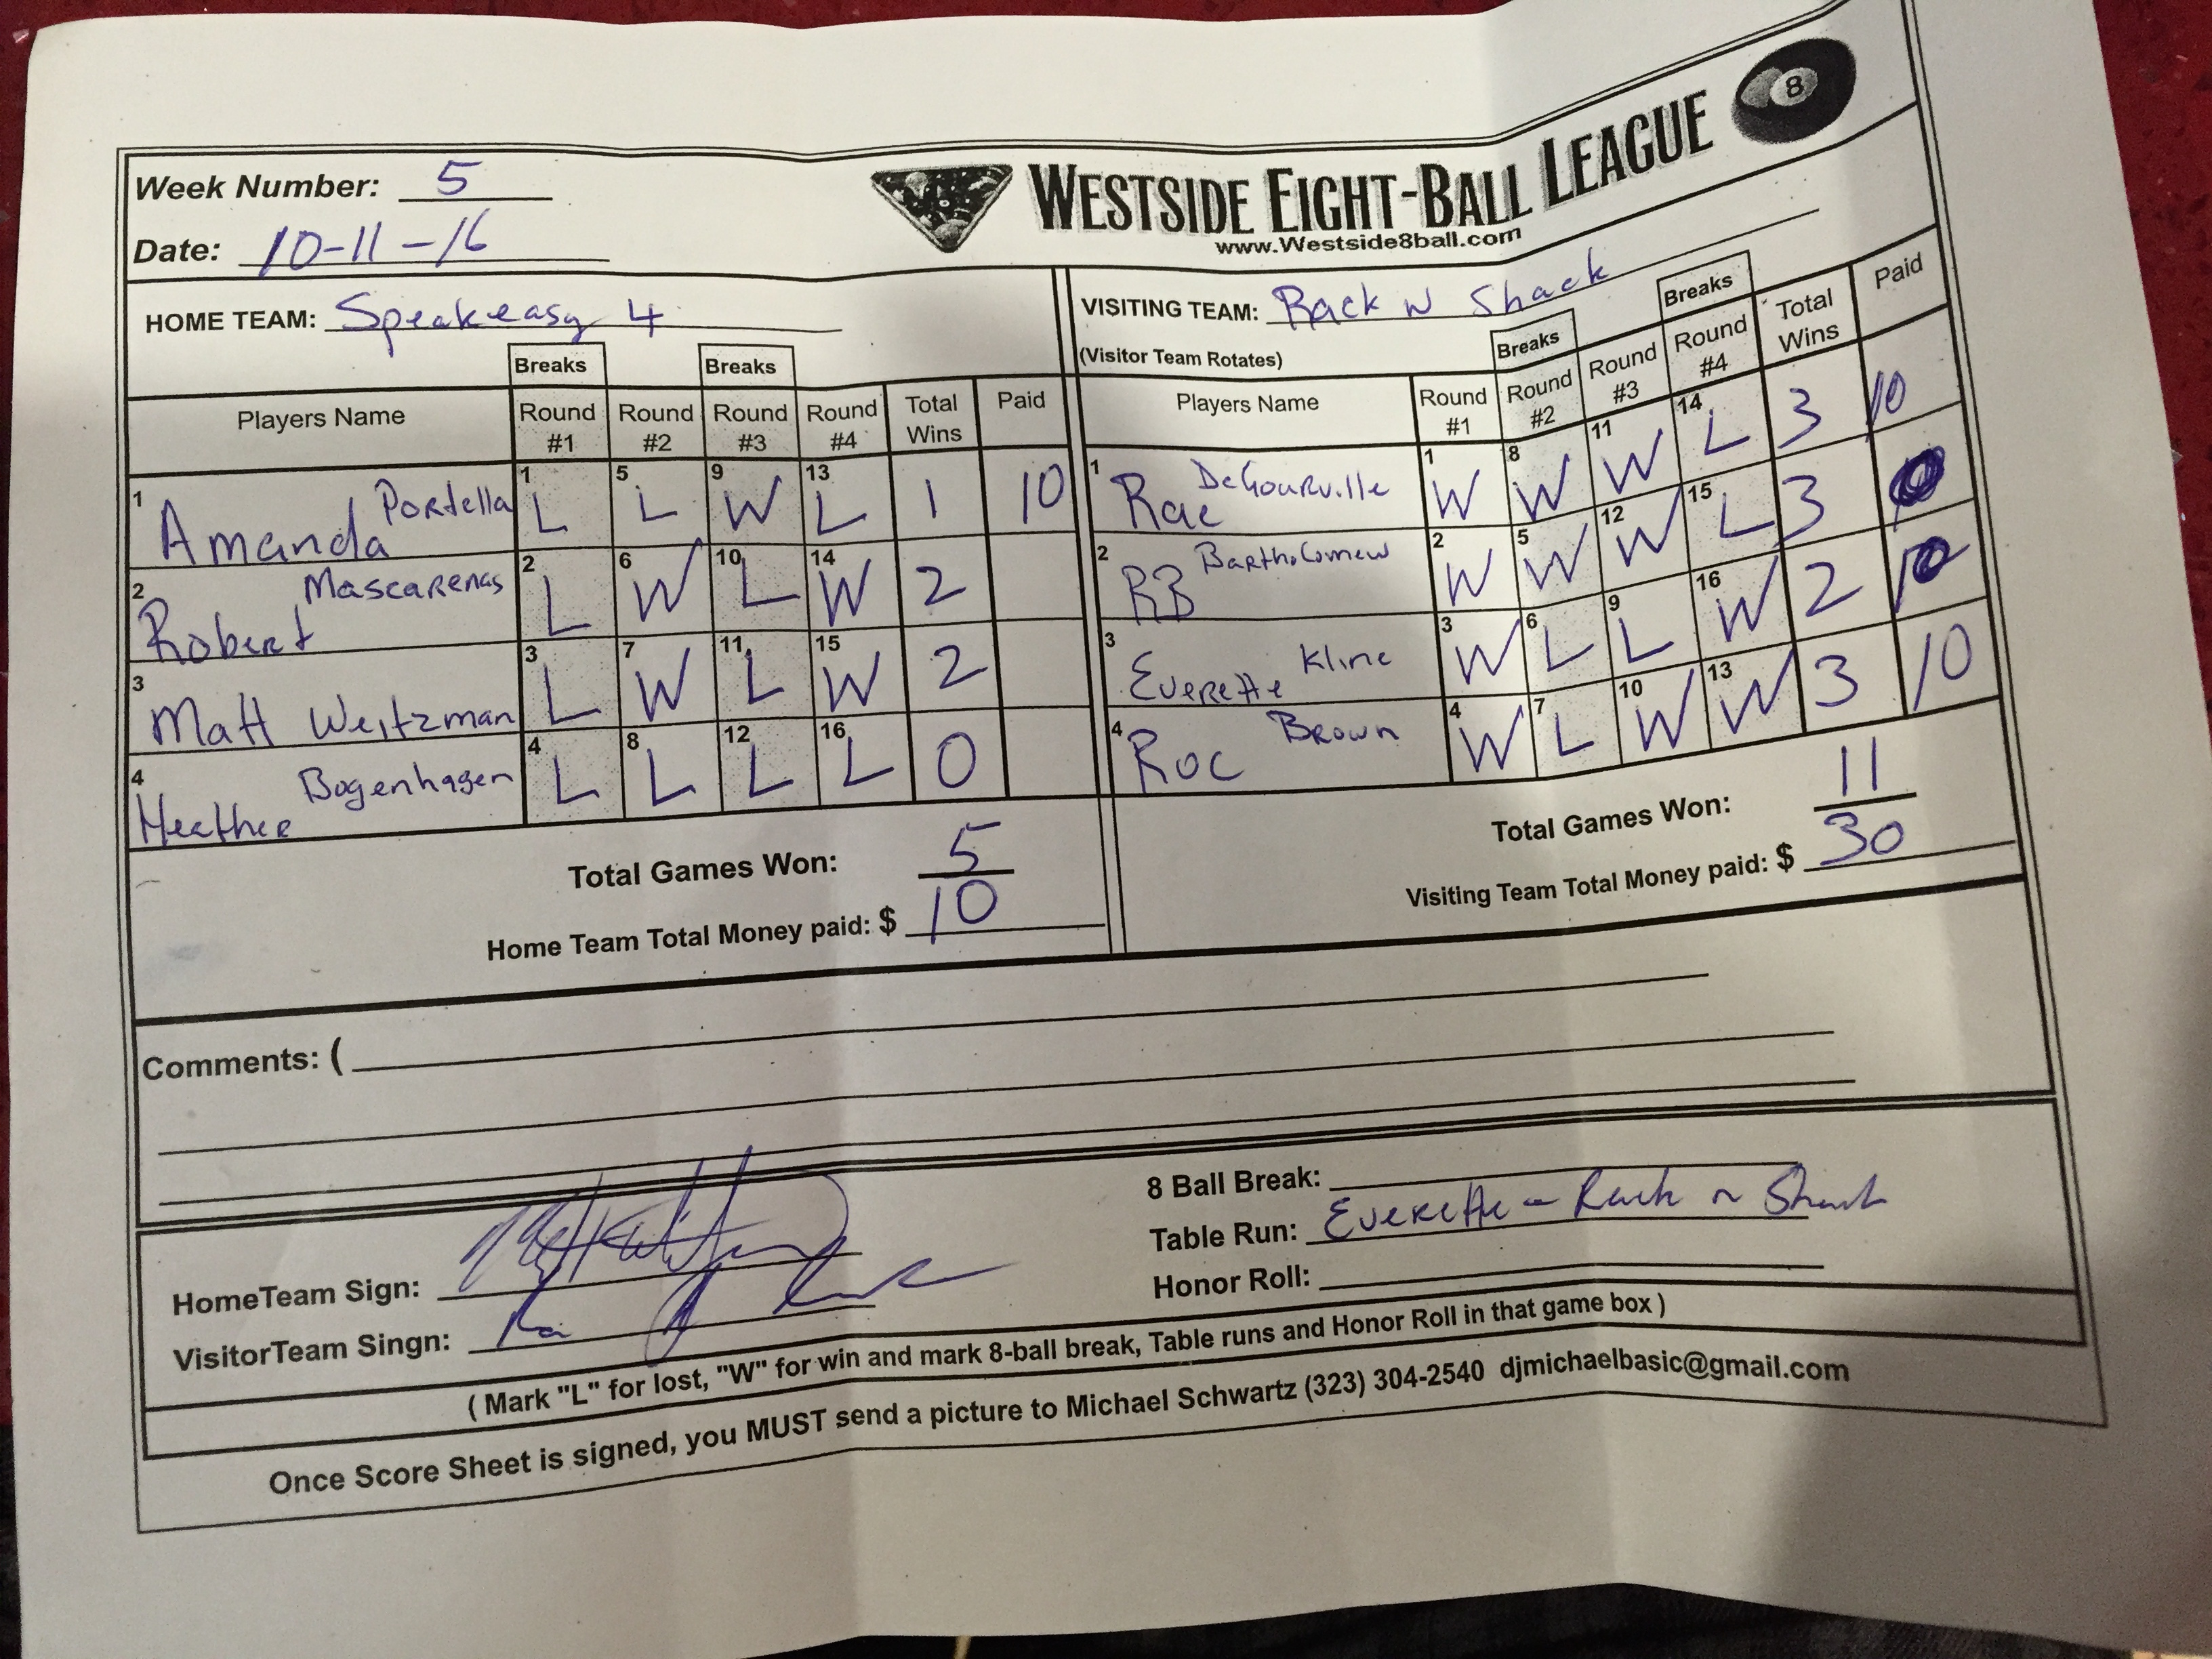 Week Number: 5
Date: 10-11-16
WESTSIDE EIGHT-BALL LEAGUE 8
www.Westside8ball.com
HOME TEAM: Speakeasy 4
Breaks Breaks
Players Name Round #1 Round #2 Round #3 Round #4 Total Wins Paid
1 Amanda Portella 1 L 5 L 9 W 13 L 1 10
2 Robert Mascarenas 2 L 6 W 10 L 14 W 2
3 Matt Weitzman 3 L 7 W 11 L 15 W 2
4 Heather Bogenhagen 4 L 8 L 12 L 16 L 0
Total Games Won: 5
Home Team Total Money paid: $ 10
VISITING TEAM: Rack N Shack
(Visitor Team Rotates)
Breaks Breaks
Players Name Round #1 Round #2 Round #3 Round #4 Total Wins Paid
1 Rae DeGourville 1 W 8 W 11 W 14 L 3 10
2 RB Bartholomew 2 W 5 W 12 W 15 L 3
3 Everette Kline 3 W 6 L 9 L 16 W 2 10
4 Roc Brown 4 W 7 L 10 W 13 W 3 10
Total Games Won: 11
Visiting Team Total Money paid: $ 30
Comments: (
HomeTeam Sign:
VisitorTeam Singn:
8 Ball Break:
Table Run: Everette - Rack n Shack
Honor Roll:
( Mark "L" for lost, "W" for win and mark 8-ball break, Table runs and Honor Roll in that game box )
Once Score Sheet is signed, you MUST send a picture to Michael Schwartz (323) 304-2540 djmichaelbasic@gmail.com